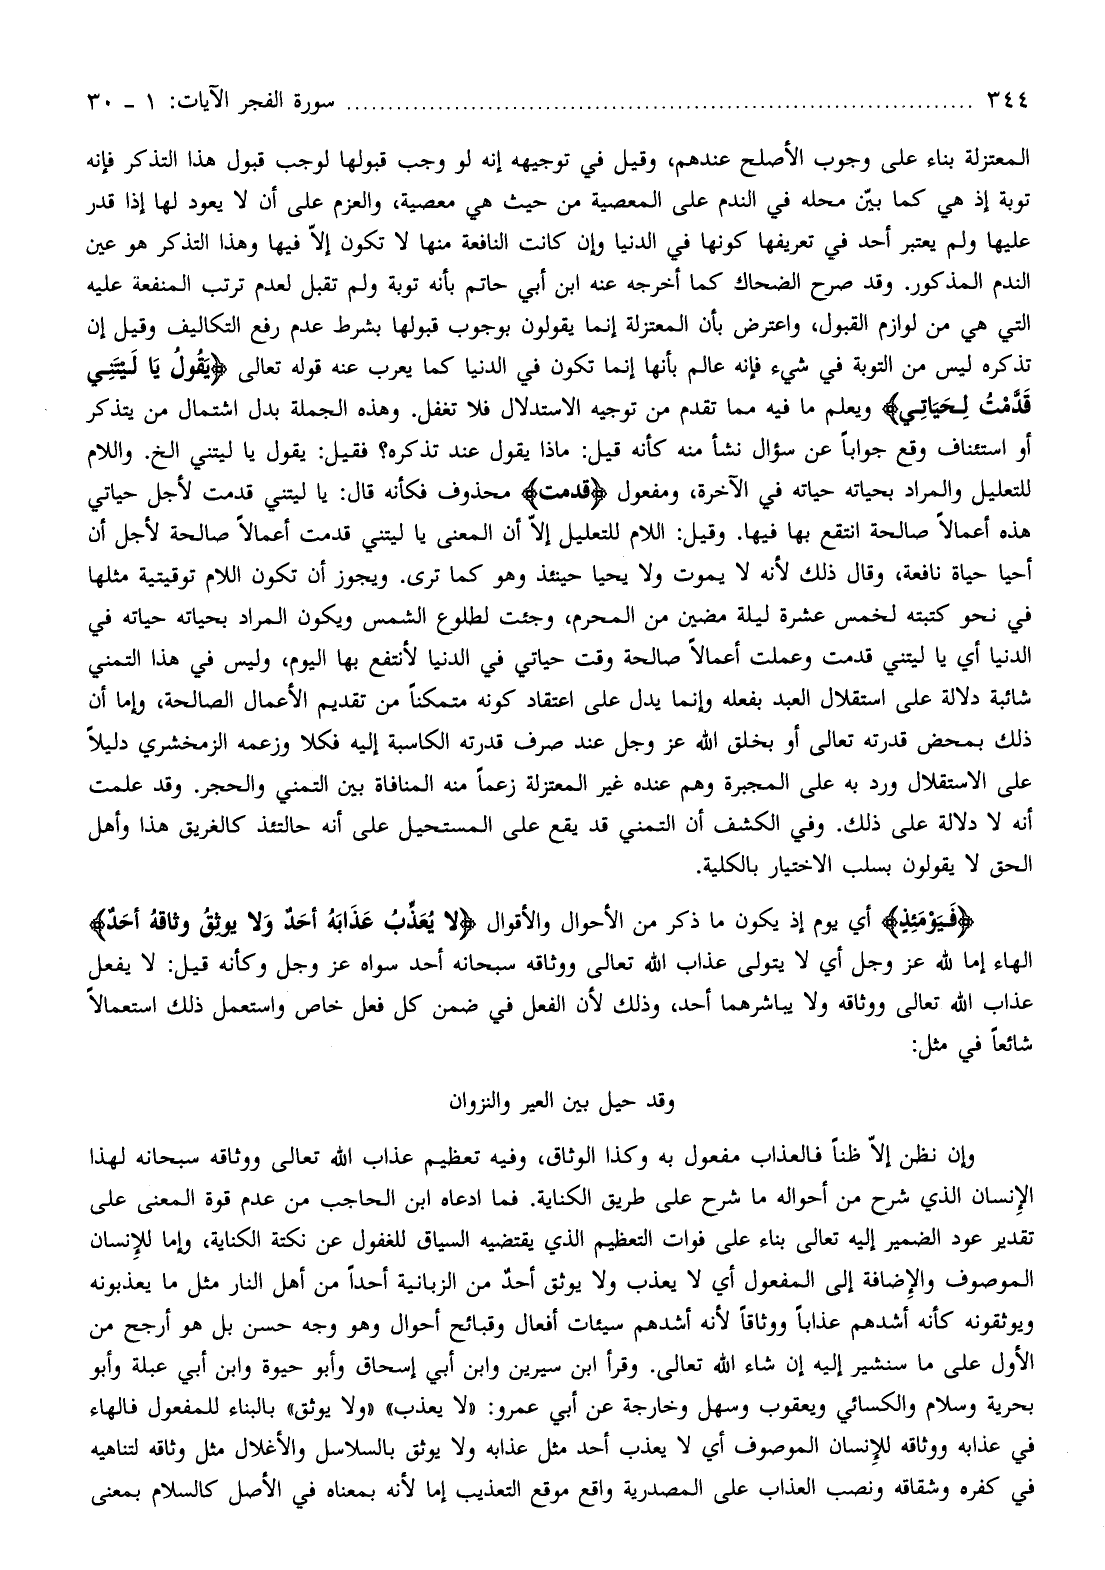 ٣٤٤ ........................................ سورة الفجر الآيات: ١ - ٣٠
المعتزلة بناء على وجوب الأصلح عندهم، وقيل في توجيهه إنه لو وجب قبولها لوجب قبول هذا التذكر فإنه
توبة إذ هي كما بيّن محله في الندم على المعصية من حيث هي معصية، والعزم على أن لا يعود لها إذا قدر
عليها ولم يعتبر أحد في تعريفها كونها في الدنيا وإن كانت النافعة منها لا تكون إلاّ فيها وهذا التذكر هو عين
الندم المذكور. وقد صرح الضحاك كما أخرجه عنه ابن أبي حاتم بأنه توبة ولم تقبل لعدم ترتب المنفعة عليه
التي هي من لوازم القبول، واعترض بأن المعتزلة إنما يقولون بوجوب قبولها بشرط عدم رفع التكاليف وقيل إن
تذكره ليس من التوبة في شيء فإنه عالم بأنها إنما تكون في الدنيا كما يعرب عنه قوله تعالى ﴿يَقُولُ يَا لَيْتَنِي
قَدَّمْتُ لِحَيَاتِي﴾ ويعلم ما فيه مما تقدم من توجيه الاستدلال فلا تغفل. وهذه الجملة بدل اشتمال من يتذكر
أو استئناف وقع جواباً عن سؤال نشأ منه كأنه قيل: ماذا يقول عند تذكره؟ فقيل: يقول يا ليتني الخ. واللام
للتعليل والمراد بحياته حياته في الآخرة، ومفعول ﴿قدمت﴾ محذوف فكأنه قال: يا ليتني قدمت لأجل حياتي
هذه أعمالاً صالحة انتقع بها فيها. وقيل: اللام للتعليل إلاّ أن المعنى يا ليتني قدمت أعمالاً صالحة لأجل أن
أحيا حياة نافعة، وقال ذلك لأنه لا يموت ولا يحيا حينئذ وهو كما ترى. ويجوز أن تكون اللام توقيتية مثلها
في نحو كتبته لخمس عشرة ليلة مضين من المحرم، وجئت لطلوع الشمس ويكون المراد بحياته حياته في
الدنيا أي يا ليتني قدمت وعملت أعمالاً صالحة وقت حياتي في الدنيا لأنتفع بها اليوم، وليس في هذا التمني
شائبة دلالة على استقلال العبد بفعله وإنما يدل على اعتقاد كونه متمكناً من تقديم الأعمال الصالحة، وإما أن
ذلك بمحض قدرته تعالى أو بخلق الله عز وجل عند صرف قدرته الكاسبة إليه فكلا وزعمه الزمخشري دليلاً
على الاستقلال ورد به على المجبرة وهم عنده غير المعتزلة زعماً منه المنافاة بين التمني والحجر. وقد علمت
أنه لا دلالة على ذلك. وفي الكشف أن التمني قد يقع على المستحيل على أنه حالتئذ كالغريق هذا وأهل
الحق لا يقولون بسلب الاختيار بالكلية.
﴿فَيَوْمَئِذٍ﴾ أي يوم إذ يكون ما ذكر من الأحوال والأقوال ﴿لا يُعَذِّبُ عَذَابَهُ أحَدٌ وَلا يوثِقُ وثاقهُ أحَدٌ﴾
الهاء إما لله عز وجل أي لا يتولى عذاب الله تعالى ووثاقه سبحانه أحد سواه عز وجل وكأنه قيل: لا يفعل
عذاب الله تعالى ووثاقه ولا يباشرهما أحد، وذلك لأن الفعل في ضمن كل فعل خاص واستعمل ذلك استعمالاً
شائعاً في مثل:
وقد حيل بين العير والنزوان
وإن نظن إلاّ ظناً فالعذاب مفعول به وكذا الوثاق، وفيه تعظيم عذاب الله تعالى ووثاقه سبحانه لهذا
الإنسان الذي شرح من أحواله ما شرح على طريق الكناية. فما ادعاه ابن الحاجب من عدم قوة المعنى على
تقدير عود الضمير إليه تعالى بناء على فوات التعظيم الذي يقتضيه السياق للغفول عن نكتة الكناية، وإما للإنسان
الموصوف والإضافة إلى المفعول أي لا يعذب ولا يوثق أحدٌ من الزبانية أحداً من أهل النار مثل ما يعذبونه
ويوثقونه كأنه أشدهم عذاباً ووثاقاً لأنه أشدهم سيئات أفعال وقبائح أحوال وهو وجه حسن بل هو أرجح من
الأول على ما سنشير إليه إن شاء الله تعالى. وقرأ ابن سيرين وابن أبي إسحاق وأبو حيوة وابن أبي عبلة وأبو
بحرية وسلام والكسائي ويعقوب وسهل وخارجة عن أبي عمرو: «لا يعذب» «ولا يوثق» بالبناء للمفعول فالهاء
في عذابه ووثاقه للإنسان الموصوف أي لا يعذب أحد مثل عذابه ولا يوثق بالسلاسل والأغلال مثل وثاقه لتناهيه
في كفره وشقاقه ونصب العذاب على المصدرية واقع موقع التعذيب إما لأنه بمعناه في الأصل كالسلام بمعنى